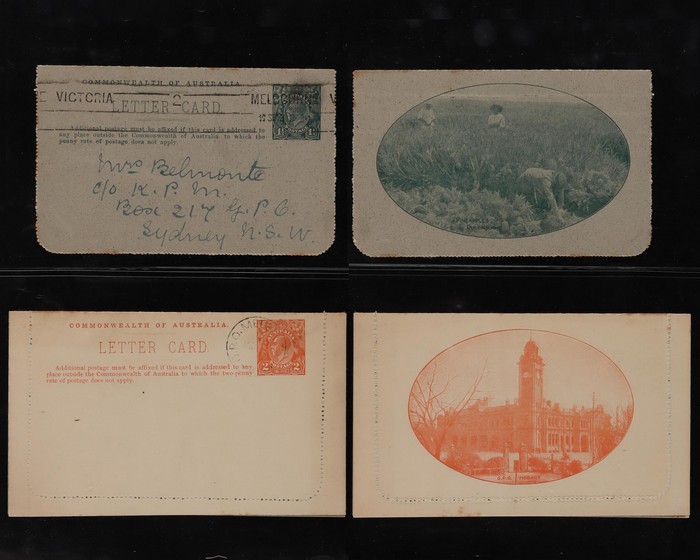 COMMONWEALTH OF AUSTRALIA
VICTORIA
2
MELBOURNE
V
LETTER CARD
Additional postage must be affixed if this card is addressed to
any place outside the Commonwealth of Australia to which the
penny rate of postage does not apply.
Mrs Belmonte
c/o K. P. M.
Box 217 G. P. O.
Sydney N. S. W.
PINEAPPLES
COMMONWEALTH OF AUSTRALIA.
LETTER CARD
Additional postage must be affixed if this card is addressed to any
place outside the Commonwealth of Australia to which the two-penny
rate of postage does not apply.
2 2
G.P.O. HOBART